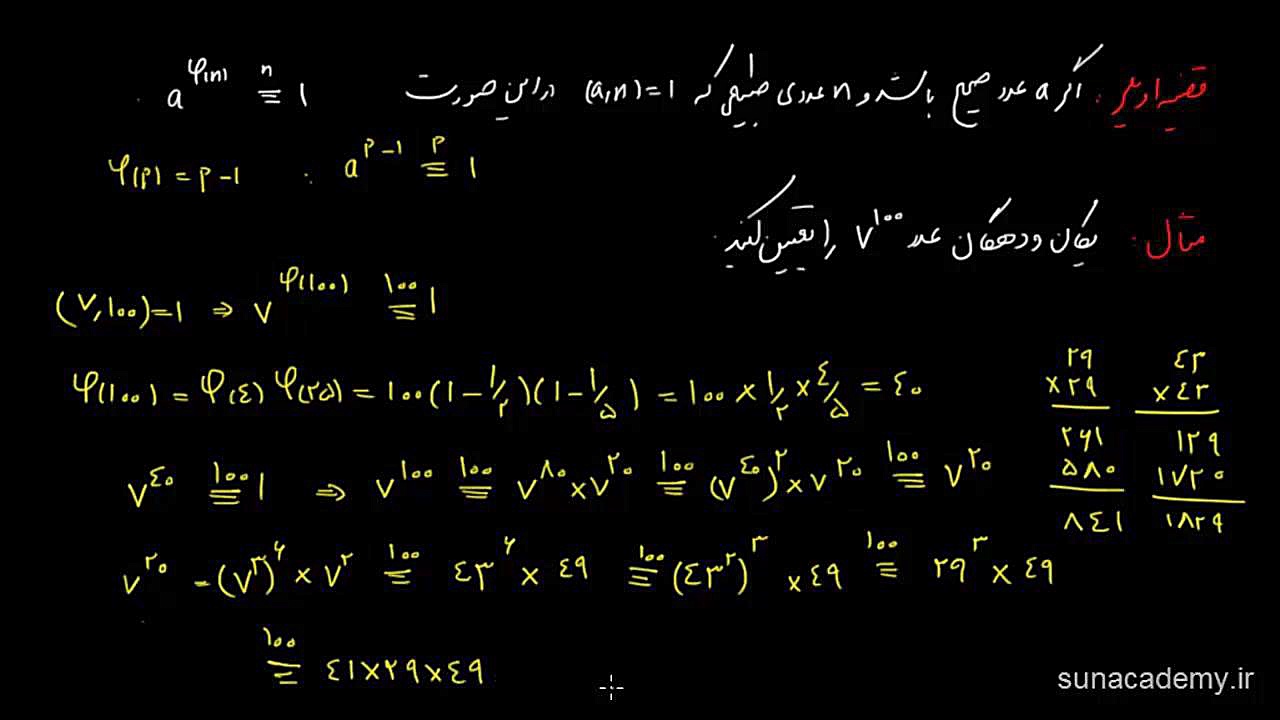 قضیه اویلر : اگر a عدد صحیح باشد و n عددی طبیعی که (a,n)=1 در این صورت a^φ(n) ≡ⁿ 1
φ(p) = p-1 : a^(p-1) ≡^p 1
مثال : یکان و دهگان عدد ۷^۱۰۰ را تعیین کنید.
(۷,۱۰۰)=۱ ⇒ ۷^φ(۱۰۰) ≡^۱۰۰ ۱
φ(۱۰۰) = φ(٤) φ(۲۵) = ۱۰۰(۱-۱/۲)(۱-۱/۵) = ۱۰۰ × ۱/۲ × ٤/۵ = ٤۰
۷^٤۰ ≡^۱۰۰ ۱ ⇒ ۷^۱۰۰ ≡^۱۰۰ ۷^۸۰ × ۷^۲۰ ≡^۱۰۰ (۷^٤۰)^۲ × ۷^۲۰ ≡^۱۰۰ ۷^۲۰
۷^۲۰ = (۷^۳)^۶ × ۷^۲ ≡^۱۰۰ ٤۳^۶ × ٤۹ ≡^۱۰۰ (٤۳^۲)^۳ × ٤۹ ≡^۱۰۰ ۲۹^۳ × ٤۹
≡^۱۰۰ ٤۱×۲۹×٤۹
۲۹
×۲۹
۲۶۱
۵۸۰
۸٤۱
٤۳
×٤۳
۱۲۹
۱۷۲۰
۱۸٤۹
sunacademy.ir